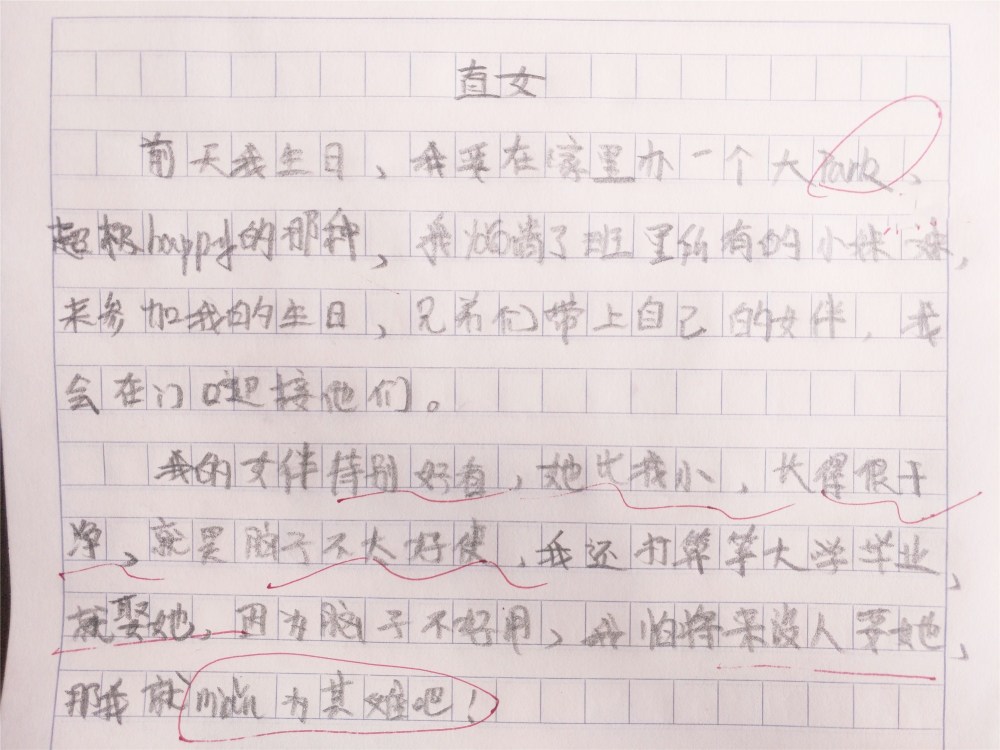 直女
前天我生日，我要在家里办一个大Party，
超极happy的那种，我邀请了班里所有的小妹妹，
来参加我的生日，兄弟们带上自己的女伴，我
会在门口迎接他们。
我的女伴特别好看，她比我小，长得很干
净，就是脑子不大好使，我还打算等大学毕业，
就娶她，因为脑子不好用，我怕将来没人要她，
那我就 为其难吧！